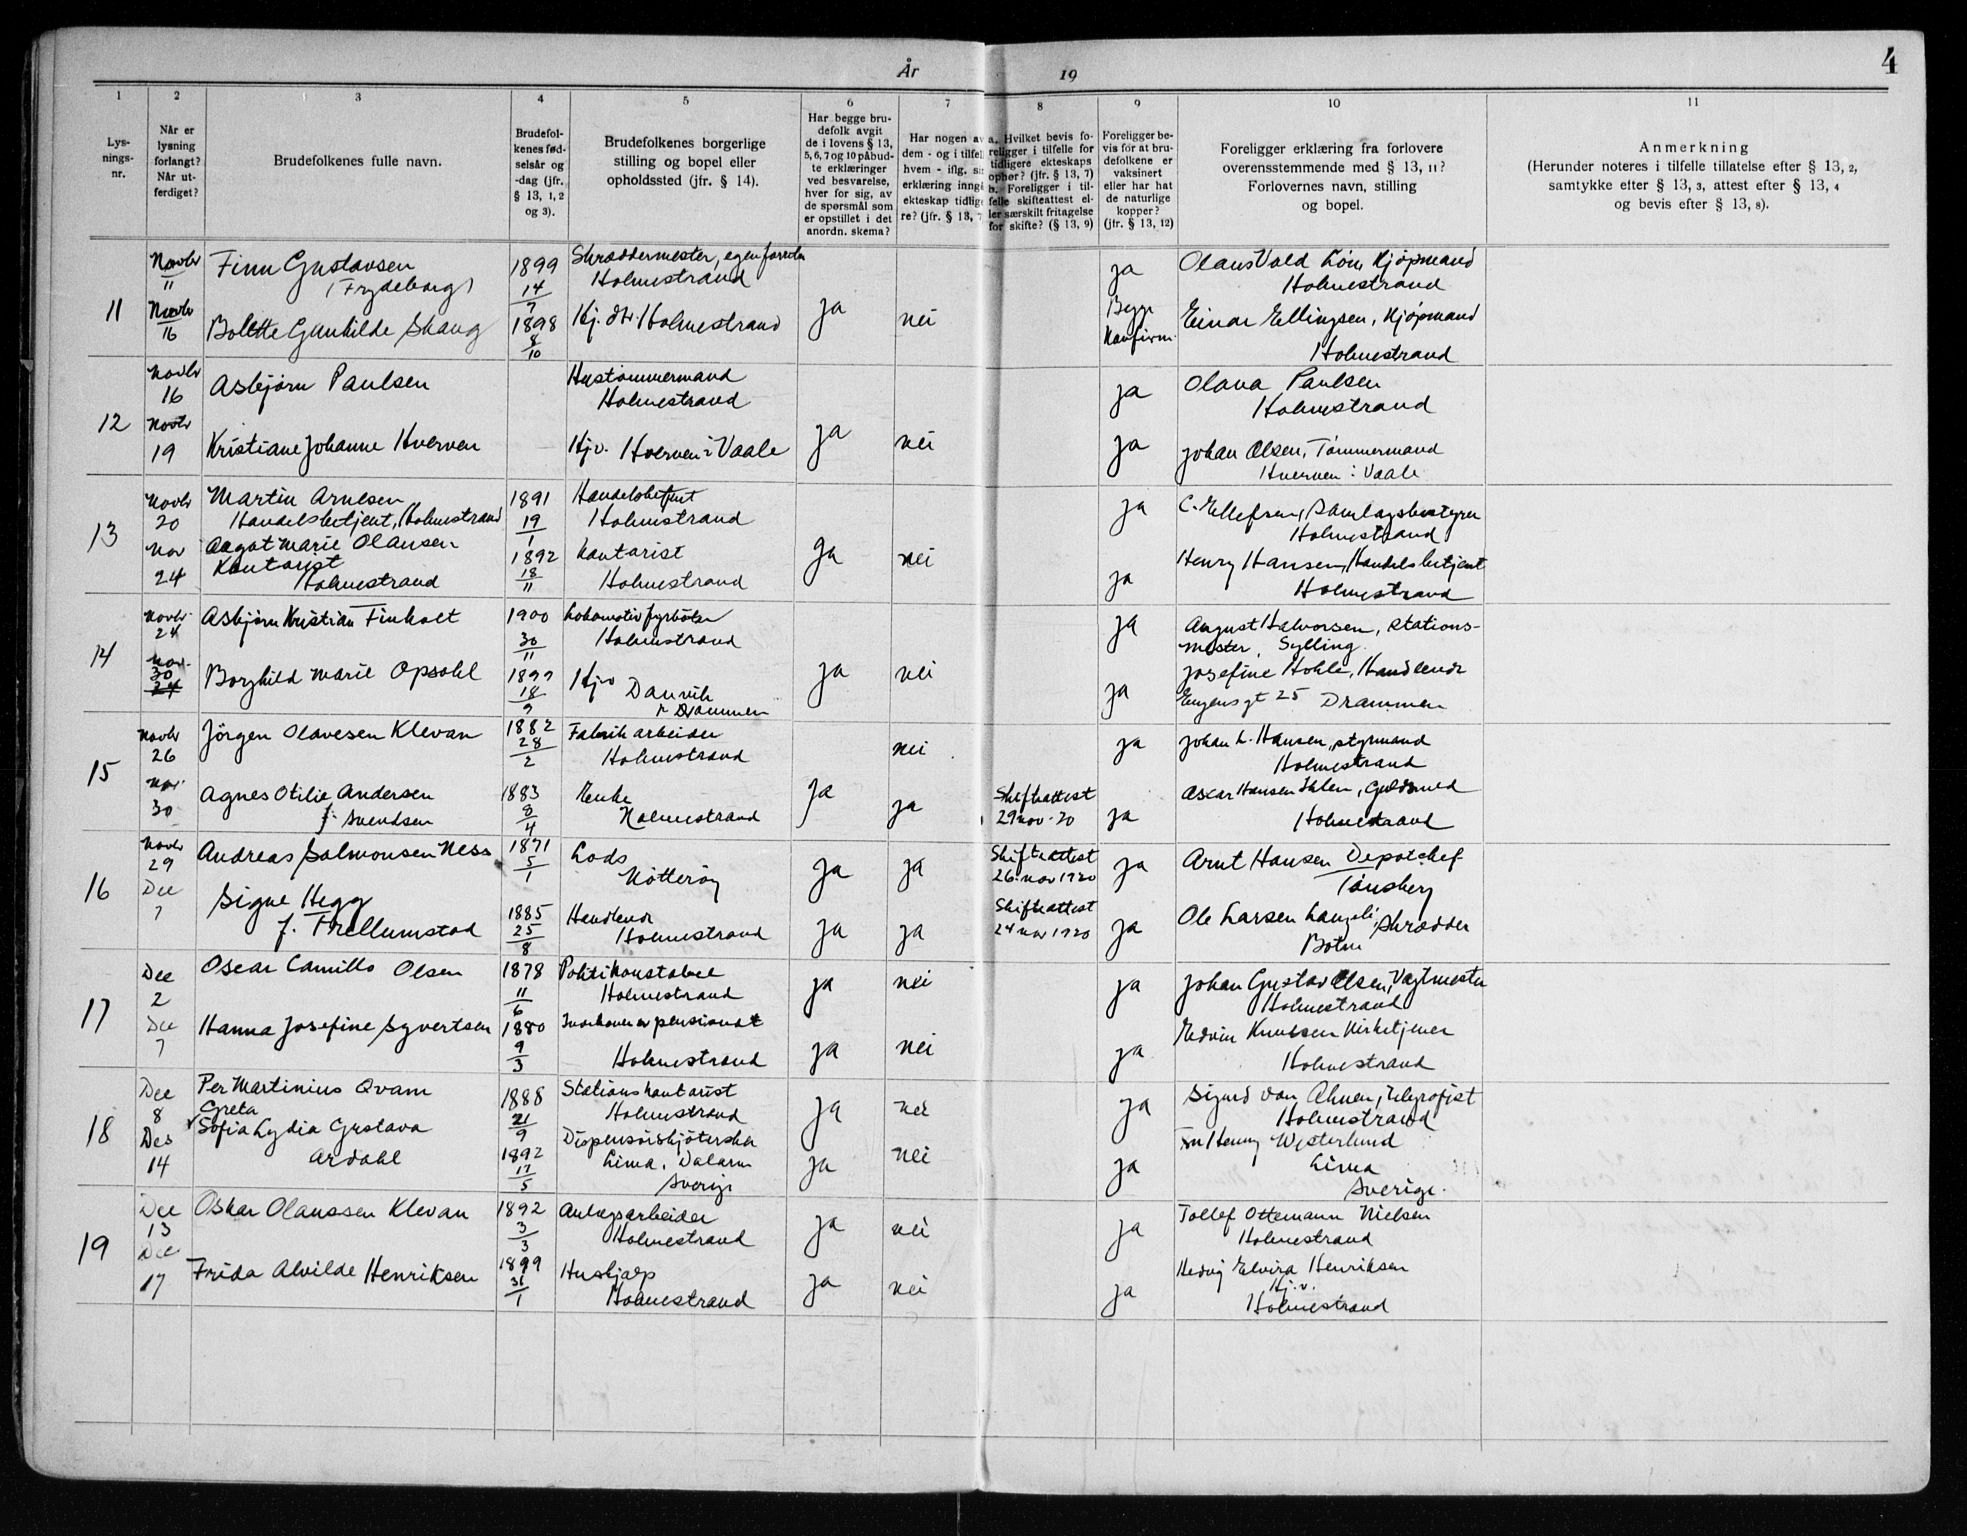 År 19
4
1 2 3 4 5 6 7 8 9 10 11
Lys-
nings-
nr.
Når er
lysning
forlangt?
Når ut-
ferdiget?
Brudefolkenes fulle navn.
Brudefol-
kenes fød-
selsår og
-dag (jfr.
§ 13, 1, 2
og 3).
Brudefolkenes borgerlige
stilling og bopel eller
opholdssted (jfr. § 14).
Har begge bru-
defolk avgit
de i lovens § 13,
5, 6, 7 og 10 påbud-
te erklæringer
ved besvarelse,
hver for sig, av
de spørsmål som
er opstillet i det
anordn. skema?
Har nogen av
dem - og i tilfell
hvem - iflg. si
erklæring inngå
ekteskap tidlige
re? (jfr. § 13, 7
a. Hvilket bevis fo-
religger i tilfelle for
tidligere ekteskaps
ophør? (jfr. § 13, 7)
b. Foreligger i til-
felle skifteattest el-
ler særskilt fritagelse
for skifte? (§ 13, 9)
Foreligger be-
vis for at bru-
defolkene er
vaksinert
eller har hat
de naturlige
kopper?
(jfr. § 13, 12)
Foreligger erklæring fra forlovere
overensstemmende med § 13, 11?
Forlovernes navn, stilling
og bopel.
Anmerkning
(Herunder noteres i tilfelle tillatelse efter § 13, 2,
samtykke efter § 13, 3, attest efter § 13, 4
og bevis efter § 13, 8).
11
Novbr
11
Finn Gustavsen
(Frydeborg)
1899
14
7
Skræddermester, egen
Holmestrand
ja
Olaus Vold Løn, Kjøpmand
Holmestrand
Novbr
16
Bolette Gunhilde Skaug
1898
8
10
Kj. dtr. Holmestrand
ja
nei
Begge
Konfirm.
Einar Ellingsen, Kjøpmand
Holmestrand
12
Novbr
16
Asbjørn Paulsen
Hustømmermand
Holmestrand
ja
Olava Paulsen
Holmestrand
Novbr
19
Kristiane Johanne Hverven
Hj.v. Hverven i Vaale
ja
nei
ja
Johan Olsen, Tømmermand
Hverven i Vaale
13
Novbr
20
Martin Arnesen
Handelsbetjent, Holmestrand
1891
19
1
Handelsbetjent
Holmestrand
ja
C. Ellefsen, Samlagsbestyrer
Holmestrand
Nov
24
Aagot Marie Olausen
Kontorist
Holmestrand
1892
18
11
kontorist
Holmestrand
ja
nei
ja
Henry Hansen, Handelsbetjent
Holmestrand
14
Novbr
24
Asbjørn Kristian Finholt
1900
30
11
Lokomotivfyrbøter
Holmestrand
ja
August Halvorsen, stations-
mester, Sylling
Nov.
30
24
Borghild Marie Opsahl
1899
18
9
Hj.v
Danvik
v Drammen
ja
nei
ja
Josefine Hohle, Handlende
Engensgt 25 Drammen
15
Novbr
26
Jörgen Olavesen Klevan
1882
28
2
Fabrikarbeider
Holmestrand
nei
ja
Johan L. Hansen, styrmand
Holmestrand
Nov
30
Agnes Otilie Andersen
f. Svendsen
1883
8
4
Enke
Holmestrand
ja
ja
Skifteattest
29 nov-20
ja
Oscar Hansen Ihlen, Guldsmed
Holmestrand
16
Novbr
29
Andreas Salmonsen Ness
1871
5
1
Lods
Nötteröy
ja
ja
Skifteattest
26. nov 1920
ja
Arnt Hansen Depotchef
Tønsberg
Dec
7
Signe Hegg
f. Trellumstad
1885
25
8
Handlende
Holmestrand
ja
ja
Skifteattest
24 nov 1920
ja
Ole Larsen Langeli, Skrædder
Botne
17
Dec
2
Oscar Camillo Olsen
1878
11
6
Politikonstabel
Holmestrand
ja
nei
ja
Johan Gustav Olsen, Vagtmester
Holmestrand
Dec
7
Hanna Josefine Syvertsen
1880
9
3
Indehaver av pensionat
Holmestrand
ja
nei
ja
Edvin Knudsen Kirketjener
Holmestrand
18
Dec
8
Per Martinius Qvam
1888
21
9
Stationskontorist
Holmestrand
ja
nei
ja
Sigurd von Ahnen, Telegrafist
Holmestrand
Des
14
Greta
Sofia Lydia Gustava
Ardahl
1892
17
5
Dispensärskjöterska
Lima, Dalarn
Sverige
ja
nei
ja
Fru Henny Westerlund
Lima
Sverige.
19
Dec
13
Oskar Olaussen Klevan
1892
3
3
Anlægsarbeider
Holmestrand
ja
nei
ja
Tollef Ottemann Nielsen
Holmestrand
Dec
17
Frida Alvilde Henriksen
1899
31
1
Hushjælp
Holmestrand
ja
nei
ja
Hedvig Elvira Henriksen
Hj.v.
Holmestrand